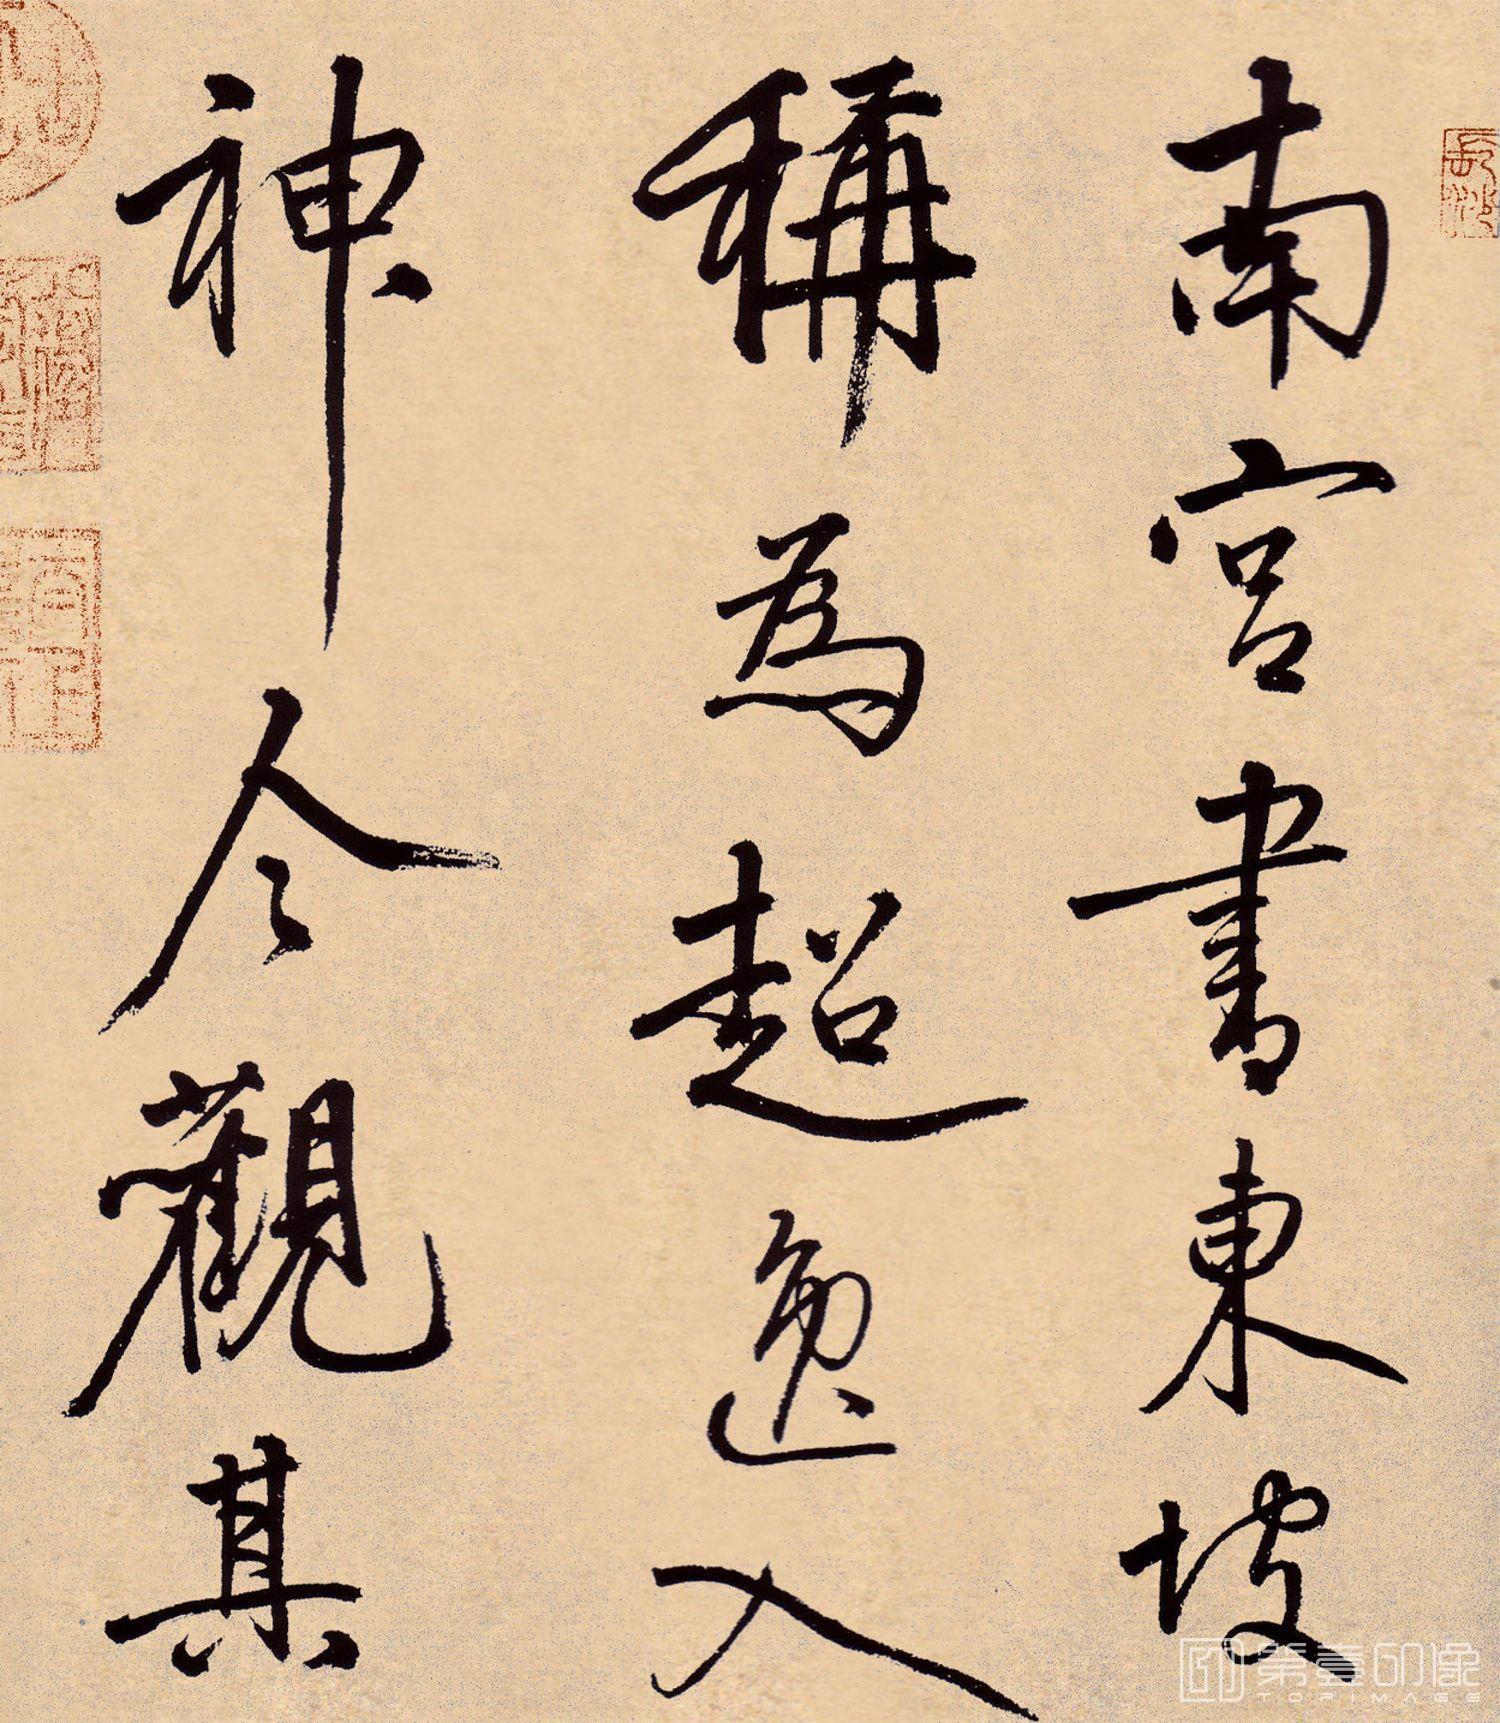 南宫書東坡
稱為超逸入
神今觀其
長沙
第壹印像
TOPIMAGE